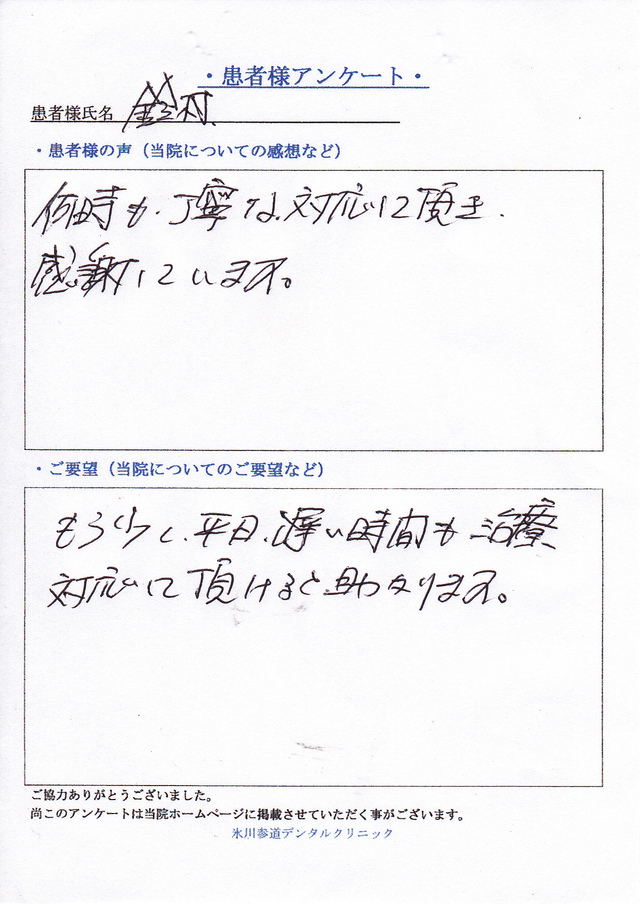 ・患者様アンケート・
患者様氏名 鈴村
・患者様の声（当院についての感想など）
何時も、丁寧な対応して頂き、
感謝しています。
・ご要望（当院についてのご要望など）
もう少し、平日、遅い時間も治療
対応して頂けると助かります。
ご協力ありがとうございました。
尚このアンケートは当院ホームページに掲載させていただく事がございます。
氷川参道デンタルクリニック